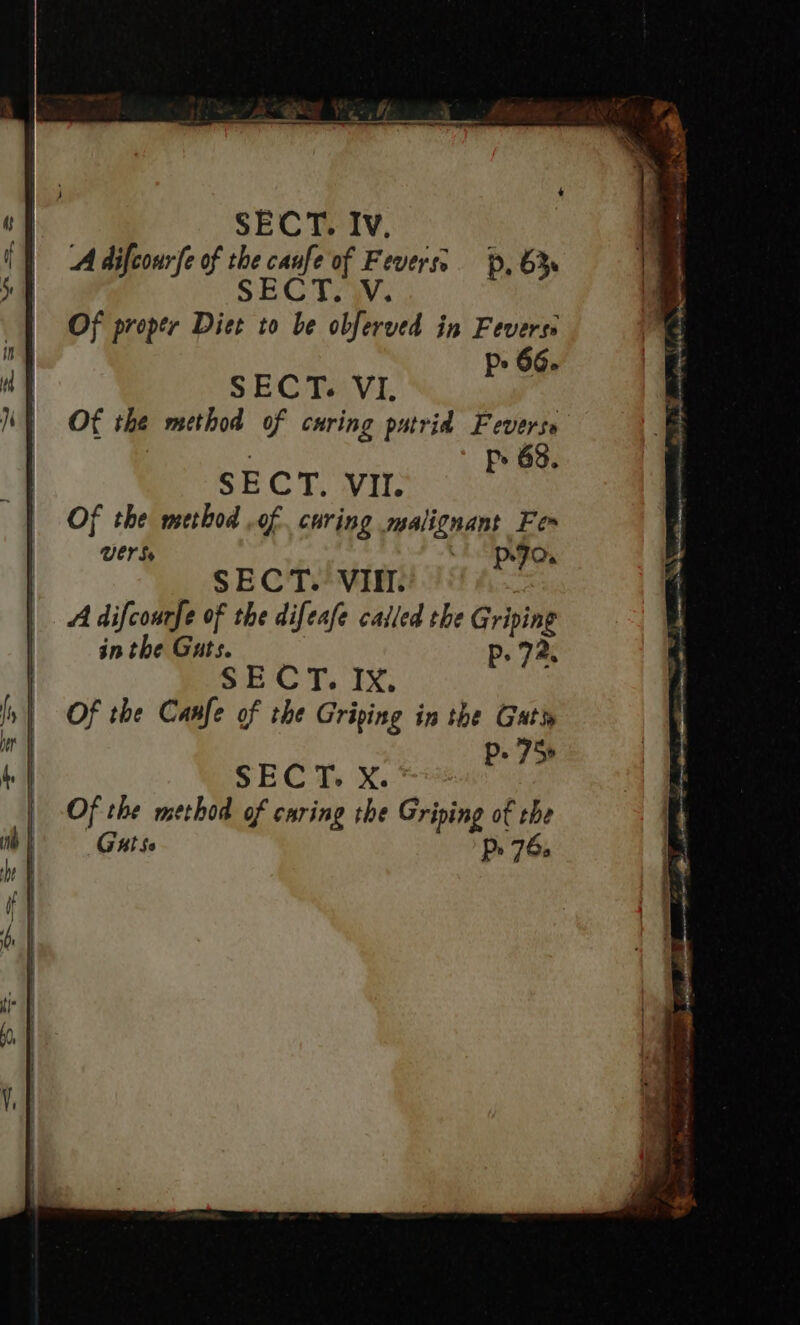 SECT. IV.
A diſcourſe of the cauſe of Fevers. p. 63.
SECT. V.
Of proper Diet to be obſerved in Fevers.
p. 66.
SECT. VI.
Of the method of curing putrid Fevers.
p. 68.
SECT. VII.
Of the method of curing malignant Fe-
vers. p. 70.
SECT. VIII.
A diſcourſe of the diſeaſe called the Griping
in the Guts. p. 72.
SECT. IX.
Of the Cauſe of the Griping in the Guts,
p. 75.
SECT. X.
Of the method of curing the Griping of the
Guts. p. 76.